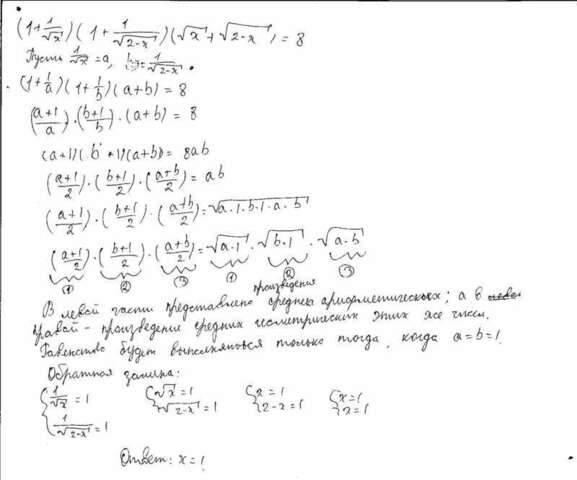 (1+1/√x)(1+1/√(2-x))(√x+√(2-x))=8
Пусть 1/√x=a, b=1/√(2-x).
(1+1/a)(1+1/b)(a+b)=8
((a+1)/a)·((b+1)/b)·(a+b)=8
(a+1)(b+1)(a+b)=8ab
((a+1)/2)·((b+1)/2)·((a+b)/2)=ab
((a+1)/2)·((b+1)/2)·((a+b)/2)=√(a·1·b·1·a·b)
((a+1)/2)·((b+1)/2)·((a+b)/2)=√(a·1)·√(b·1)·√(a·b)
① ② ③ ① ② ③
произведение
В левой части представлено средних арифметических; а в
правой - произведение средних геометрических этих же чисел.
Равенство будет выполняться только тогда, когда a=b=1.
Обратная замена:
{1/√x=1 {√x=1 {x=1 {x=1
{1/√(2-x)=1 {√(2-x)=1 {2-x=1 {x=1
Ответ: x=1